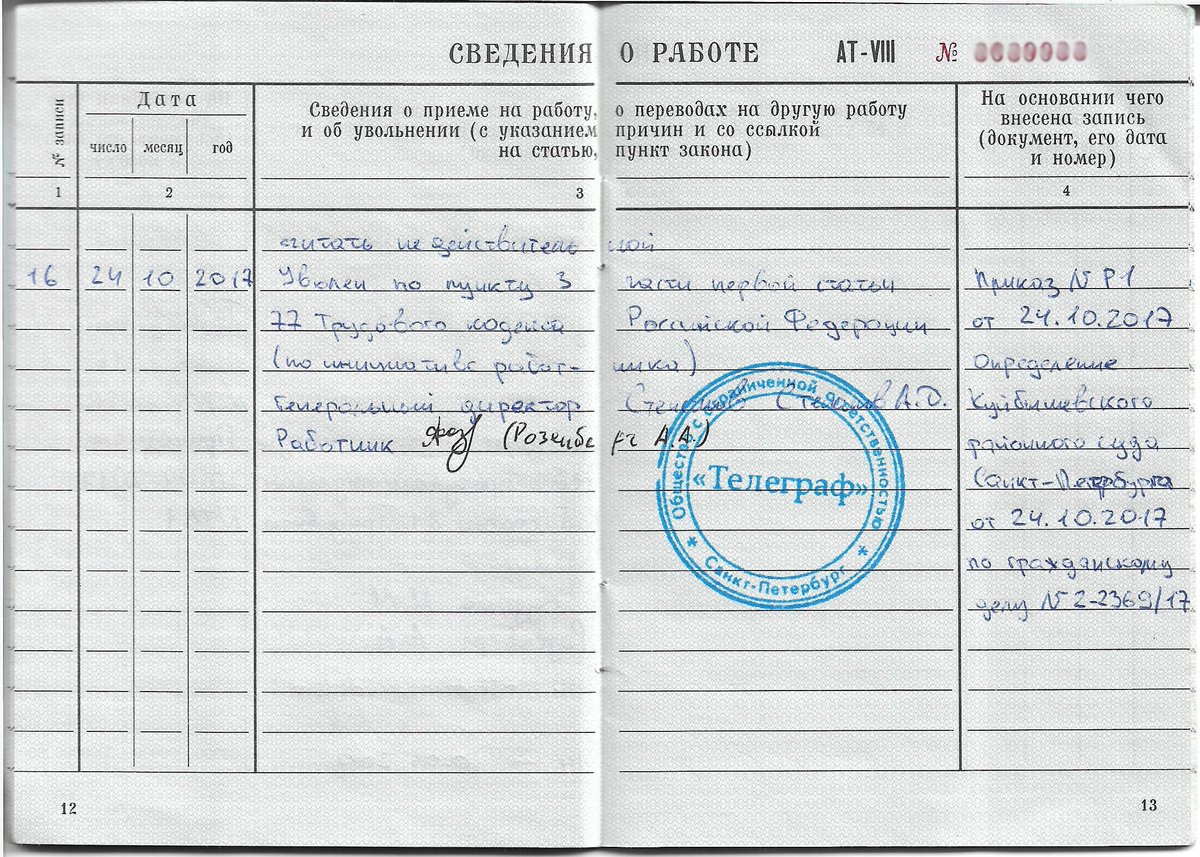 СВЕДЕНИЯ О РАБОТЕ АТ-VIII №
№ записи
Дата
число месяц год
Сведения о приеме на работу, о переводах на другую работу
и об увольнении (с указанием причин и со ссылкой
на статью, пункт закона)
На основании чего
внесена запись
(документ, его дата
и номер)
1 2 3 4
считать недействительной
16 24 10 2017 Уволен по пункту 3 части первой статьи Приказ N Р1
77 Трудового кодекса Российской Федерации от 24.10.2017
(по инициативе работника) Определение
Генеральный директор А.D. Куйбышевского
Работник (Розенберг А.А.) районного суда
Санкт-Петербурга
от 24.10.2017
по гражданскому
делу N 2-2369/17
Общество с ограниченной ответственностью
«Телеграф»
* Санкт-Петербург *
12
13